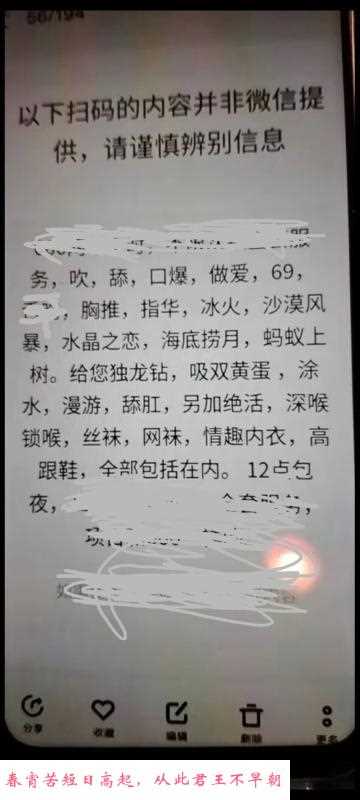 56/194
以下扫码的内容并非微信提
供，请谨慎辨别信息
服
务，吹，舔，口爆，做爱，69，
胸推，指华，冰火，沙漠风
暴，水晶之恋，海底捞月，蚂蚁上
树。给您独龙钻，吸双黄蛋，涂
水，漫游，舔肛，另加绝活，深喉
锁喉，丝袜，网袜，情趣内衣，高
跟鞋，全部包括在内。 12点包
夜，
分享
收藏
编辑
删除
更多
春宵苦短日高起，从此君王不早朝